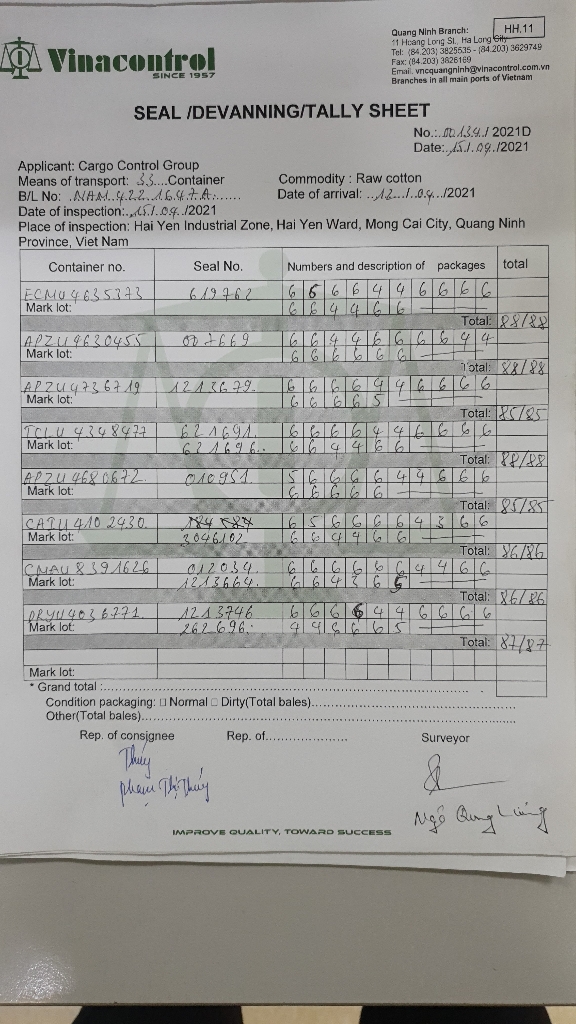 Vinacontrol
SINCE 1957
HH.11
Quang Ninh Branch:
11 Hoang Long St., Ha Long City
Tel: (84.203) 3825535 - (84.203) 3629749
Fax: (84.203) 3826169
Email. vncquangninh@vinacontrol.com.vn
Branches in all main ports of Vietnam
SEAL /DEVANNING/TALLY SHEET
No.:.00134./ 2021D
Date:.15./.09./2021
Applicant: Cargo Control Group
Means of transport: 33....Container Commodity : Raw cotton
B/L No: .NAM.422.1647.A....... Date of arrival: ..12../.09../2021
Date of inspection:..15./.09./2021
Place of inspection: Hai Yen Industrial Zone, Hai Yen Ward, Mong Cai City, Quang Ninh
Province, Viet Nam
Container no. Seal No. Numbers and description of packages total
ECMU4635373 619762 6 6 6 6 4 4 6 6 6 6
Mark lot: 6 6 4 4 6 6
Total: 88/88
APZU4630455 007669 6 6 4 4 6 6 6 6 4 4
Mark lot: 6 6 6 6 6 6
Total: 88/88
APZU4736719 1213679. 6 6 6 6 4 4 6 6 6 6
Mark lot: 6 6 6 6 5
Total: 85/85
TCLU 4348477 621691. 6 6 6 6 4 4 6 6 6 6
Mark lot: 621696.. 6 6 4 4 6 6
Total: 88/88
APZU 4680672. 010951 5 6 6 6 6 4 4 6 6 6
Mark lot: 6 6 6 6 6
Total: 85/85
CAIU 410 2430. 6 5 6 6 6 6 4 3 6 6
Mark lot: 3046102 6 6 4 4 6 6
Total: 86/86
CMAU 8391626 012034. 6 6 6 6 6 6 4 4 6 6
Mark lot: 1213664. 6 6 4 3 6 5
Total: 86/86
DRYU4036771. 1213746 6 6 6 6 4 4 6 6 6 6
Mark lot: 262696. 4 4 6 6 6 5
Total: 87/87
Mark lot:
* Grand total :
Condition packaging: □ Normal □ Dirty(Total bales)
Other(Total bales)
Rep. of consignee Rep. of.................... Surveyor
Thúy
Phạm Thị Thúy
Ngô Quang
IMPROVE QUALITY, TOWARD SUCCESS